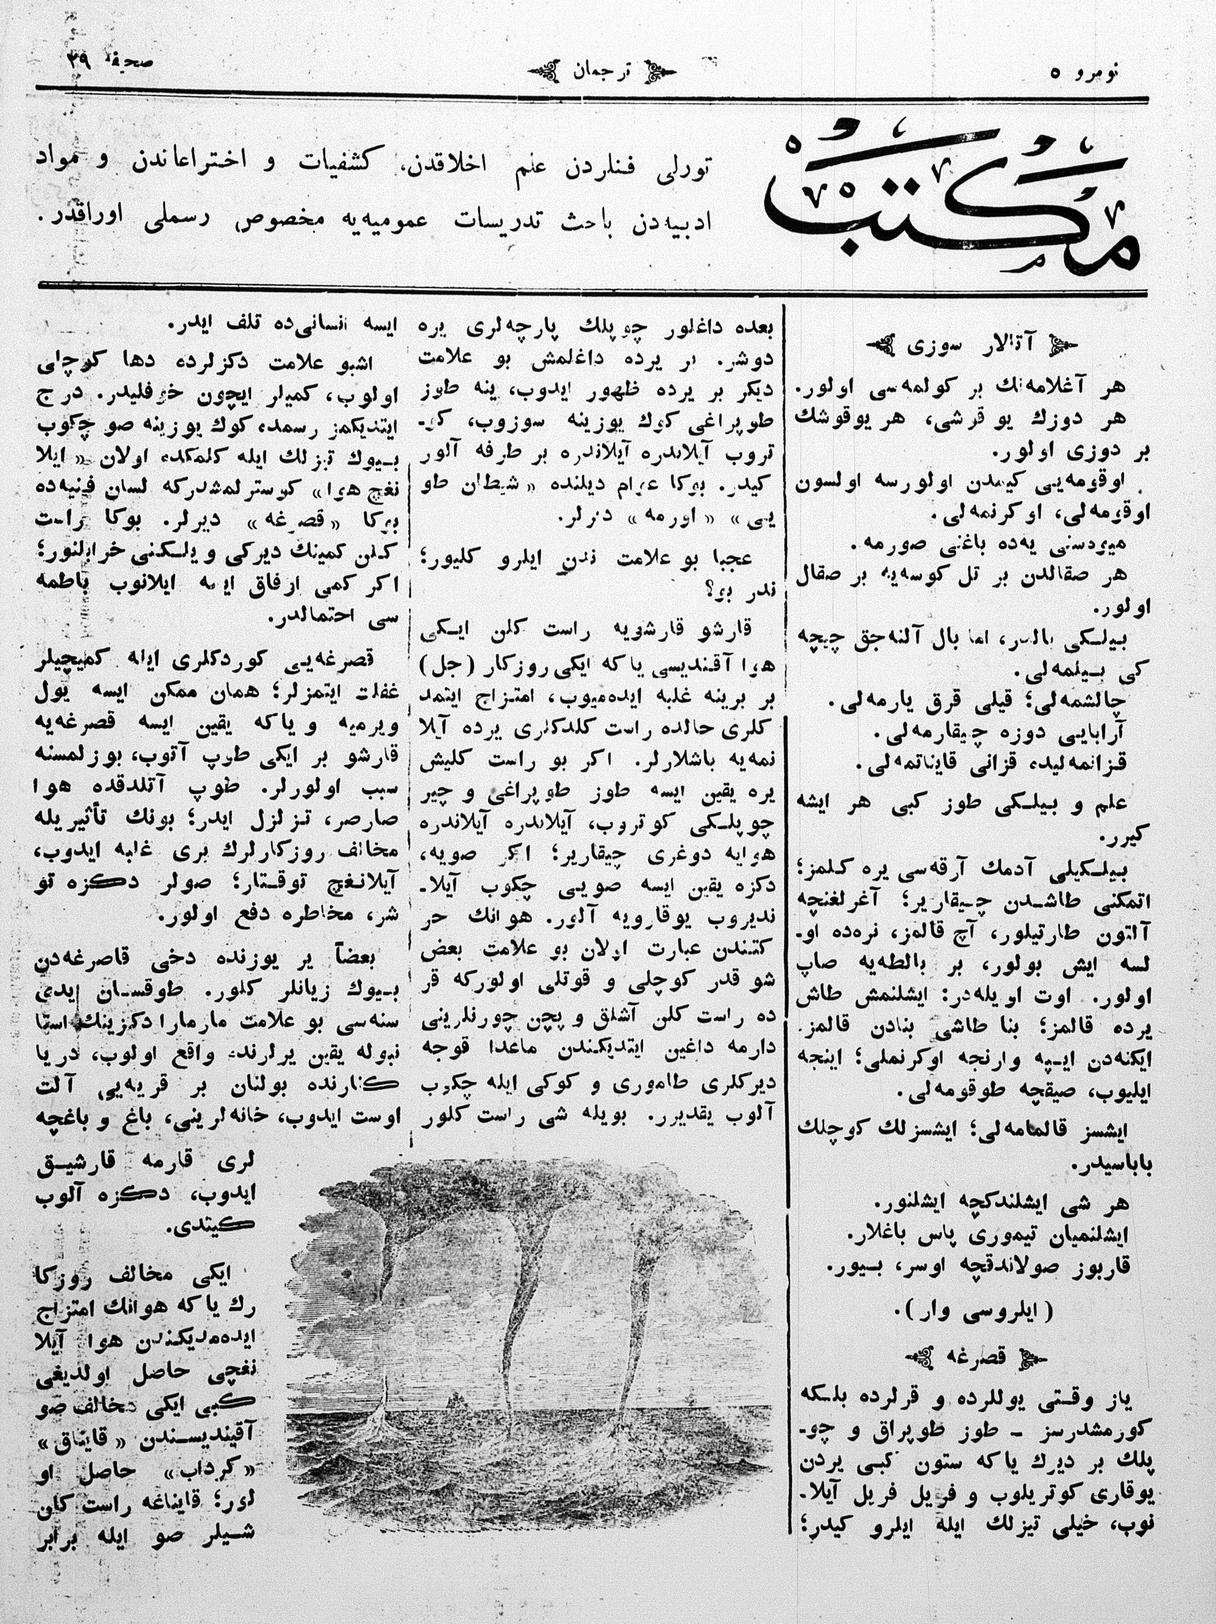 نومرو ٥
ترجمان
صحیفه ٣٩
مكتب
تورلی فنلردن علم اخلاقدن، كشفیات و اختراعاندن و مواد
ادبیه‌دن باحث تدریسات عمومیه‌یه مخصوص رسملی اوراقدر.
آتالار سوزی
هر آغلامه‌نك بر كولمه‌سی اولور.
هر دوزك یوقرشی، هر یوقوشك
بر دوزی اولور.
اوقومه‌یی كیمدن اولورسه اولسون
اوقومه‌لی، اوكرنمه‌لی.
میوه‌سنی یه‌ده باغنی صورمه.
هر صقالدن بر تل كوسه‌یه بر صقال
اولور.
بیلكی بالدر، اما بال آلنه‌جق چیچه
كی بیلمه‌لی.
چالشمه‌لی؛ قیلی قرق یارمه‌لی.
آرابایی دوزه چیقارمه‌لی.
قزانمه‌لیده، قزانی قایناتمه‌لی.
علم و بیلكی طوز كبی هر ایشه
كیرر.
بیلكیلی آدمك آرقه‌سی یره كلمز؛
اتمكنی طاشدن چیقاریر؛ آغرلغنچه
آلتون طارتیلور، آچ قالمز، نره‌ده او-
لسه ایش بولور، بر بالطه‌یه صاپ
اولور. اوت اویله‌در: ایشلنمش طاش
یرده قالمز؛ بنا طاشی بنادن قالمز.
ایكنه‌دن ایپه وارنجه اوكرنملی؛ اینجه
ایلیوب، صیقچه طوقومه‌لی.
ایشسز قالمامه‌لی؛ ایشسزلك كوچلك
باباسیدر.
هر شی ایشلندكچه ایشلنور.
ایشلنمیان تیموری پاس باغلار.
قاربوز صولاندقچه اوسر، بیور.
(ایلروسی وار).
قصرغه
یاز وقتی یوللرده و قرلرده بلكه
كورمشدرسز - طوز طوپراق و چو-
پلك بر دیرك یاكه ستون كبی یردن
یوقاری كوتریلوب و فریل فریل آیلا-
نوب، خیلی تیزلك ایله ایلرو كیدر؛
بعده داغلور چوپلك پارچه‌لری یره
دوشر. بر یرده داغلمش بو علامت
دیكر بر یرده ظهور ایدوب، ینه طوز
طوپراغی كوك یوزینه سوزوب، كو-
تروب آیلاندره آیلاندره بر طرفه آلور
كیدر. بوكا عوام دیلنده «شیطان طو
یی» «اورمه» دنرلر.
عجبا بو علامت ندن ایلرو كلیور؛
ندر بو؟
قارشو قارشویه راست كلن ایكی
هوا آقندیسی یاكه ایكی روزكار (جل)
بر برینه غلبه ایده‌میوب، امتزاج ایتمد
كلری حالده راست كلدكلری یرده آیلا
نمه‌یه باشلارلر. اكر بو راست كلیش
یره یقین ایسه طوز طوپراغی و چیر
چوپلكی كوتروب، آیلاندره آیلاندره
هوایه دوغری چیقاریر؛ اكر صویه،
دكزه یقین ایسه صویی چكوب آیلا-
ندیروب یوقارویه آلور. هوانك حر
كتندن عبارت اولان بو علامت بعض
شو قدر كوچلی و قوتلی اولوركه قر
ده راست كلن آشلق و پچن چورنلرینی
دارمه داغین ایتدیكندن ماعدا قوجه
دیركلری طاموری و كوكی ایله چكوب
آلوب یقدیرر. بویله شی راست كلور
ایسه انسانی‌ده تلف ایدر.
اشبو علامت دكزلرده دها كوچلی
اولوب، كمیلر ایچون خوفلیدر. درج
ایتدیكمز رسمده كوك یوزینه صو چكوب
بیوك تیزلك ایله كلمكده اولان «ایلا
نغچ هوا» كوسترلمشدركه لسان فنیه‌ده
بوكا «قصرغه» دیرلر. بوكا راست
كلن كمینك دیركی و یلكنی خرابلنور؛
اكر كمی اوفاق ایسه ایلانوب باطمه
سی احتمالدر.
قصرغه‌یی كوردكلری ایله كمیچیلر
غفلت ایتمزلر؛ همان ممكن ایسه یول
ویرمیه و یاكه یقین ایسه قصرغه‌یه
قارشو بر ایكی طوپ آتوب، بوزلمسنه
سبب اولورلر. طوپ آتلدقده هوا
صارصر، تزلزل ایدر؛ بونك تأثیریله
مخالف روزكارلرك بری غلبه ایدوب،
آیلانغچ توقتار؛ صولر دكزه تو
شر، مخاطره دفع اولور.
بعضآ یر یوزنده دخی قاصرغه‌دن
بیوك زیانلر كلور. طوقسان ایدی
سنه‌سی بو علامت مارمارا دكزینك
یقین یرلرنده واقع اولوب، دریا
كنارنده بولنان بر قریه‌یی آلت
اوست ایدوب، خانه‌لرینی، باغ و باغچه
لری قارمه قارشیق
ایدوب، دكزه آلوب
كیتدی.
ایكی مخالف روزكا
رك یاكه هوانك امتزاج
ایده‌مدیكندن هوا آیلا
نغچی حاصل اولدیغی
كبی ایكی مخالف صو
آقیندیسندن «قایناق»
«كرداب» حاصل او
لور؛ قایناغه راست كلن
شیلر صو ایله برابر